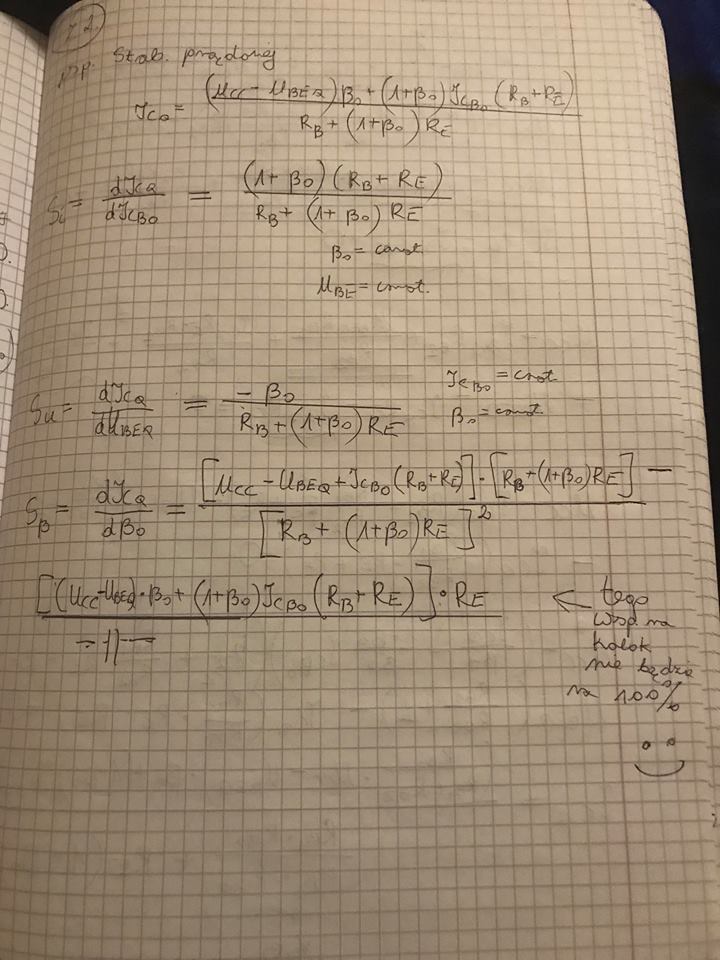 72.
wsp. Stab. prądowej
I_CQ = ((U_CC - U_BEQ)β_0 + (1+β_0) I_CB0 (R_B + R_E)) / (R_B + (1+β_0) R_E)
S_i = dI_CQ / dI_CB0 = ((1+β_0)(R_B + R_E)) / (R_B + (1+β_0) R_E)
β_0 = const
U_BE = const.
S_u = dI_CQ / dU_BEQ = -β_0 / (R_B + (1+β_0) R_E)
I_CB0 = const
β_0 = const.
S_β = dI_CQ / dβ_0 = ([U_CC - U_BEQ + I_CB0 (R_B + R_E)] · [R_B + (1+β_0) R_E] - / [R_B + (1+β_0) R_E]^2
[(U_CC - U_BEQ) · β_0 + (1+β_0) I_CB0 (R_B + R_E)] · R_E
-//-
← tego
wsp. na
kolok
nie będzie
na 100%